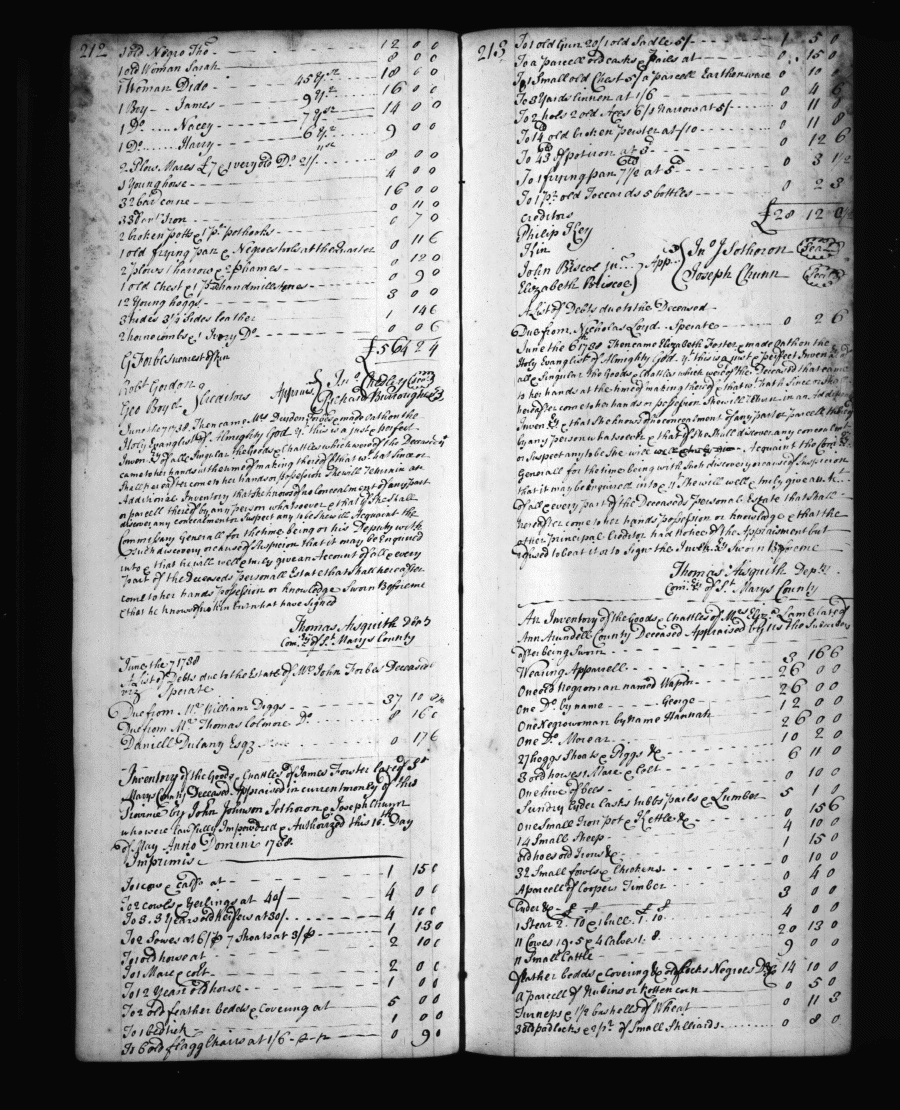 212
1 old Negro Tho. 12 0 0
1 old Woman Sarah 8 0 0
1 Woman Dido 45 yrs 18 0 0
1 Boy James 9 yrs 16 0 0
1 Do. Nacey 7 yrs 14 0 0
1 Do. Harry 6 yrs 9 0 0
2 Plow Mares £7 & 1 very old Do. 21/ 8 0 0
1 Young horse 4 0 0
32 bar corne 16 0 0
33 old Iron 0 11 0
2 broken potts & 1 pr pothooks 0 7 0
1 old frying pan & Negroes hols at the Quarter 0 11 6
2 plows 1 harrow & 2 phames 0 12 0
1 old Chest & 1 pr handmillstones 0 9 0
12 Young hoggs 3 0 0
3 hides 3 1/2 Sides leather 1 14 6
2 horncombs & 1 Ivory Do. 0 0 6
£564 2 4
G Forbes nearest of Kin
Robt Gordon
Geo Boyd Creditors
Apprais Jno Chesley Seal
Richard Burroughs
June the 7 1738. Then came Mrs Dryden Forbes & made oath on the
Holy Evanglist of Almighty God yt. this is a just & perfect
Inven. of all & Singular the Goods & Chattles which were of the Deceased yt
came to her hands at the time of making thereof & that wt. hath Since or
Shall hereafter come to her hands or possession She will return an
Additional Inventory that she knows of no Concealment of any part
or parcell thereof by any person whatsoever & that if She Shall
discover any concealment or Suspect any to be She will Acquaint the
Commissary Generall for the time being or his Deputy with
such discovery or cause of Suspicion that it may be Enquired
into & that he will well & truly give an Account of all & every
part of the deceaseds personall Estate that Shall hereafter
come to her hands possession or knowledge Sworn Before me
& that he knows of no kin but what have Signed
Thomas Aisquith Dep.
Com. of St Marys County
June the 7 1738
A List of Debts due to the Estate of Mr John Forbes Deceased
viz Sperate
Due from Mr William Diggs 37 10
Due from Mr Thomas Colmore Do. 8 16 0
Daniell Dulany Esqr 0 17 6
Inventory of the Goods & Chattles of James Forster late of St
Marys County Deceased. Appraised in current mony of this
Provnce by John Johnson Sothoron & Joseph Chunn
who were lawfully Impowdred & Authorized this 16th Day
of May Anno Domini 1738.
Imprimis
To 1 cow & calfe at 1 15 0
To 2 Cows & Yerlings at 40/ 4 0 0
To 3. 3 Years old Heifers at 30/ 4 10 0
To 2 Sowes at 6/ & 7 Shoats at 3/ 1 13 0
To 1 old horse at 2 10 0
To 1 Mare & colt 2 0 0
To 1 2 Year old horse 1 0 0
To 2 old feather bedds & Covering at 5 0 0
To 1 bedtick 1 0 0
To 6 old flagg Chairs at 1/6 0 9 0
213
To 1 old Gun 20/ 1 old Sadle 5/ 1 5 0
To a parcell old casks & pails at 0 15 0
To 1 Small old Chest 5/ a parcell Earthenware 0 10 0
To 3 Yards linnen at 1/6 0 4 6
To 2 hols 2 old Axes 6/ 1 harrow at 5/ 0 11 0
To 14 old broken pewter at /10 0 11 8
To 43 of potiron at 3d 0 12 6
To 1 frying pan 7 1/2 at 5d 0 3 1 1/2
To 1 pr. old Toccards 5 bottles 0 2 3
£28 12
Creditors
Philip Key
Kin
John Biscoe junr
Elizabeth Briscoe
App. Jno J Sothoron Seal
Joseph Chunn Seal
A List of Debts due to the Deceased
Due from Nicholas Loyd - Sperate 0 2 6
June the 6th 1738 Then came Elizabeth Foster & made Oath on the
Holy Evanglist of Almighty God. yt. this is a just & perfect Inven
all & Singular the Goods & Chattles which were of the Deceased that came
to her hands at the time of making thereof & that wt. hath Since or shall
hereafter come to her hands or possession She will return in an Additional
Inven & that She knows of no concealment of any part or parcell thereof
by any person whatsoever & that if She Shall discover any concealment
or Suspect any to be She will Acquaint the Com
Generall for the time being with Such discovery or cause of Suspicion
that it may be Enquired into & yt She will well & truly give an Acct
of all & every part of the Deceaseds personall Estate that Shall
hereafter come to her hands possession or knowledge & that the
other principal Creditor had notice of the Appraisment but
refused to look it or to Sign the Inven Sworn Before me
Thomas Aisquith Depty
Com. of St. Marys County
An Inventory of the Goods & Chattles of Mrs Eliz. Lamb late of
Ann Arundell County Deceased Appraised by Us the Subscribers
after being Sworn
Wearing Apparrell 3 16 6
One old Negroman named Wapin 26 0 0
One Do. by name George 26 0 0
One Negrowoman by name Hannah 12 0 0
One Do. Morear 26 0 0
27 hoggs Shoats & Piggs &c 10 2 0
3 ord horses 1 Mare & Colt 6 11 0
One hive of bees 0 10 0
Sundry Cyder Casks tubbs pails & Lumber 5 1 0
One Small Iron pot & Kettle &c 0 15 6
14 Small Sheep 4 10 0
old hoes ord Irons &c 1 15 0
32 Small fowls & Chickens 0 10 0
A parcell of Coopers Timber 0 4 0
Cyder &c 3 0 0
1 Stear 2. 10 & 1 bull. 1. 10 4 0 0
11 Cowes 19. 5 & 4 Calves 1. 8. 20 13 0
11 Small Cattle 9 0 0
feather bedds & Covering & old Socks Negroes Do. &c 14 10 0
a parcell of Rubins or Rotten corn 0 5 0
Turneps & 1 1/2 bushell of Wheat 0 11 3
3 old padlocks & 2 pr. of Small Stilliards 0 8 0